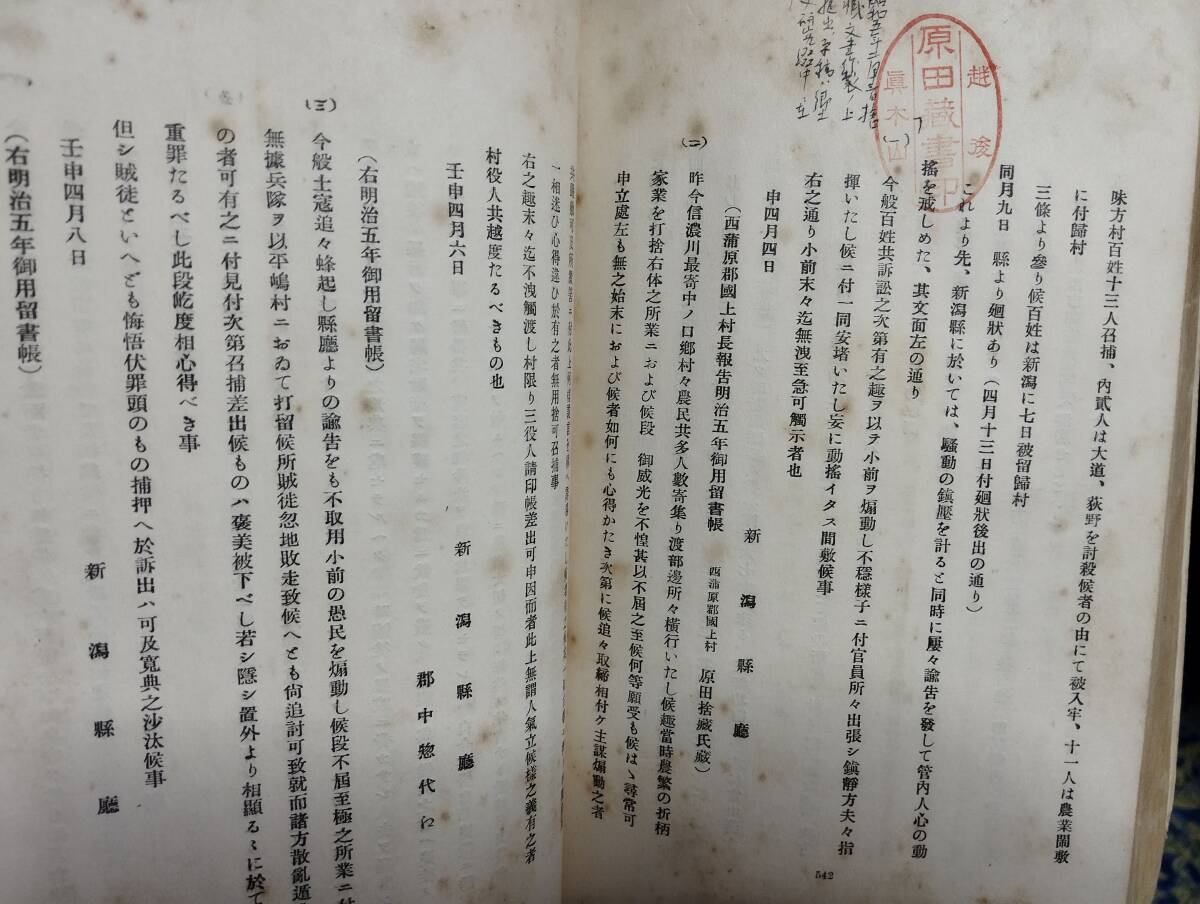 越後
原田藏書印
眞木山
味方村百姓十三人召捕、內貳人は大道、荻野を討殺候者の由にて被入牢、十一人は農業閙敷
に付歸村
三條より參り候百姓は新潟に七日被留歸村
同月九日　縣より廻狀あり（四月十三日付廻狀後出の通り）
これより先、新潟縣に於いては、騷動の鎭壓を計ると同時に屢々諭告を發して管內人心の動
搖を戒しめた、其文面左の通り
(一)
今般百姓共訴訟之次第有之趣ヲ以テ小前ヲ煽動し不穩樣子ニ付官員所々出張シ鎭靜方夫々指
揮いたし候ニ付一同安堵いたし妄に動搖イタス間敷候事
右之通り小前末々迄無洩至急可觸示者也
申四月四日
新潟縣廳
（西蒲原郡國上村長報吿明治五年御用留書帳　西蒲原郡國上村　原田捨藏氏藏）
(二)
昨今信濃川最寄中ノ口鄕村々農民共多人數寄集り渡部邊所々橫行いたし候趣當時農繁の折柄
家業を打捨右体之所業ニおよび候段　御威光を不憚甚以不屆之至候何等願受も候はゝ尋常可
申立處左も無之始末におよび候者如何にも心得かたき次第に候追々取締相付ケ主謀煽動之者
一相迷ひ心得違ひ於有之者無用捨可召捕事
右之趣末々迄不洩觸渡し村限り三役人請印帳差出可申因而者此上無謂人氣立候樣之義有之者
村役人共越度たるべきもの也
壬申四月六日
新潟縣廳
郡中惣代ね
（右明治五年御用留書帳）
(三)
今般土寇追々蜂起し縣廳よりの諭吿をも不取用小前の愚民を煽動し候段不屆至極之所業ニ付
無據兵隊ヲ以平嶋村ニおゐて打留候所賊徒忽地敗走致候へとも尙追討可致就而諸方散亂遁
の者可有之ニ付見付次第召捕差出候ものハ褒美被下べし若シ隱シ置外より相顯るゝに於て
重罪たるべし此段屹度相心得べき事
但シ賊徒といへども悔悟伏罪頭のもの捕押へ於訴出ハ可及寬典之沙汰候事
壬申四月八日
新潟縣廳
（右明治五年御用留書帳）
542